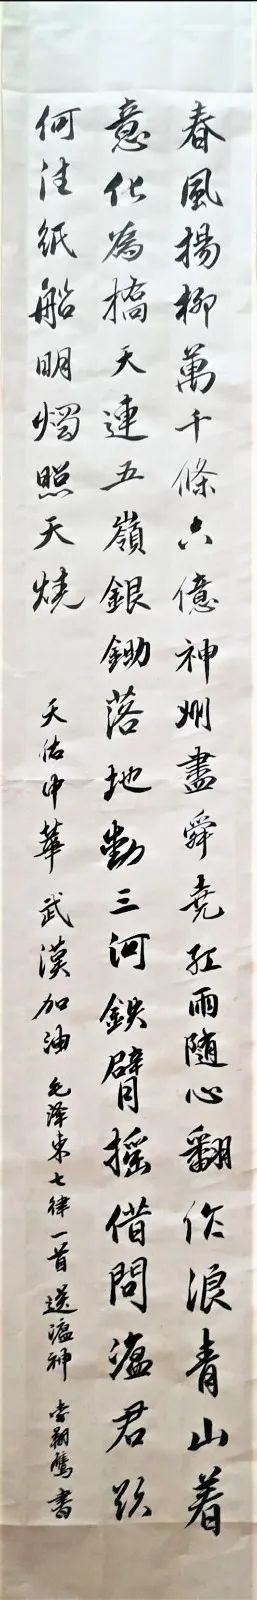 春風揚柳萬千條六億神州盡舜堯紅雨随心翻作浪青山着
意化為橋天連五嶺銀鋤落地動三河鉄臂摇借問瘟君欤
何注紙船明燭照天燒
天佑中華武漢加油毛泽東七律一首送瘟神李翔鷹書